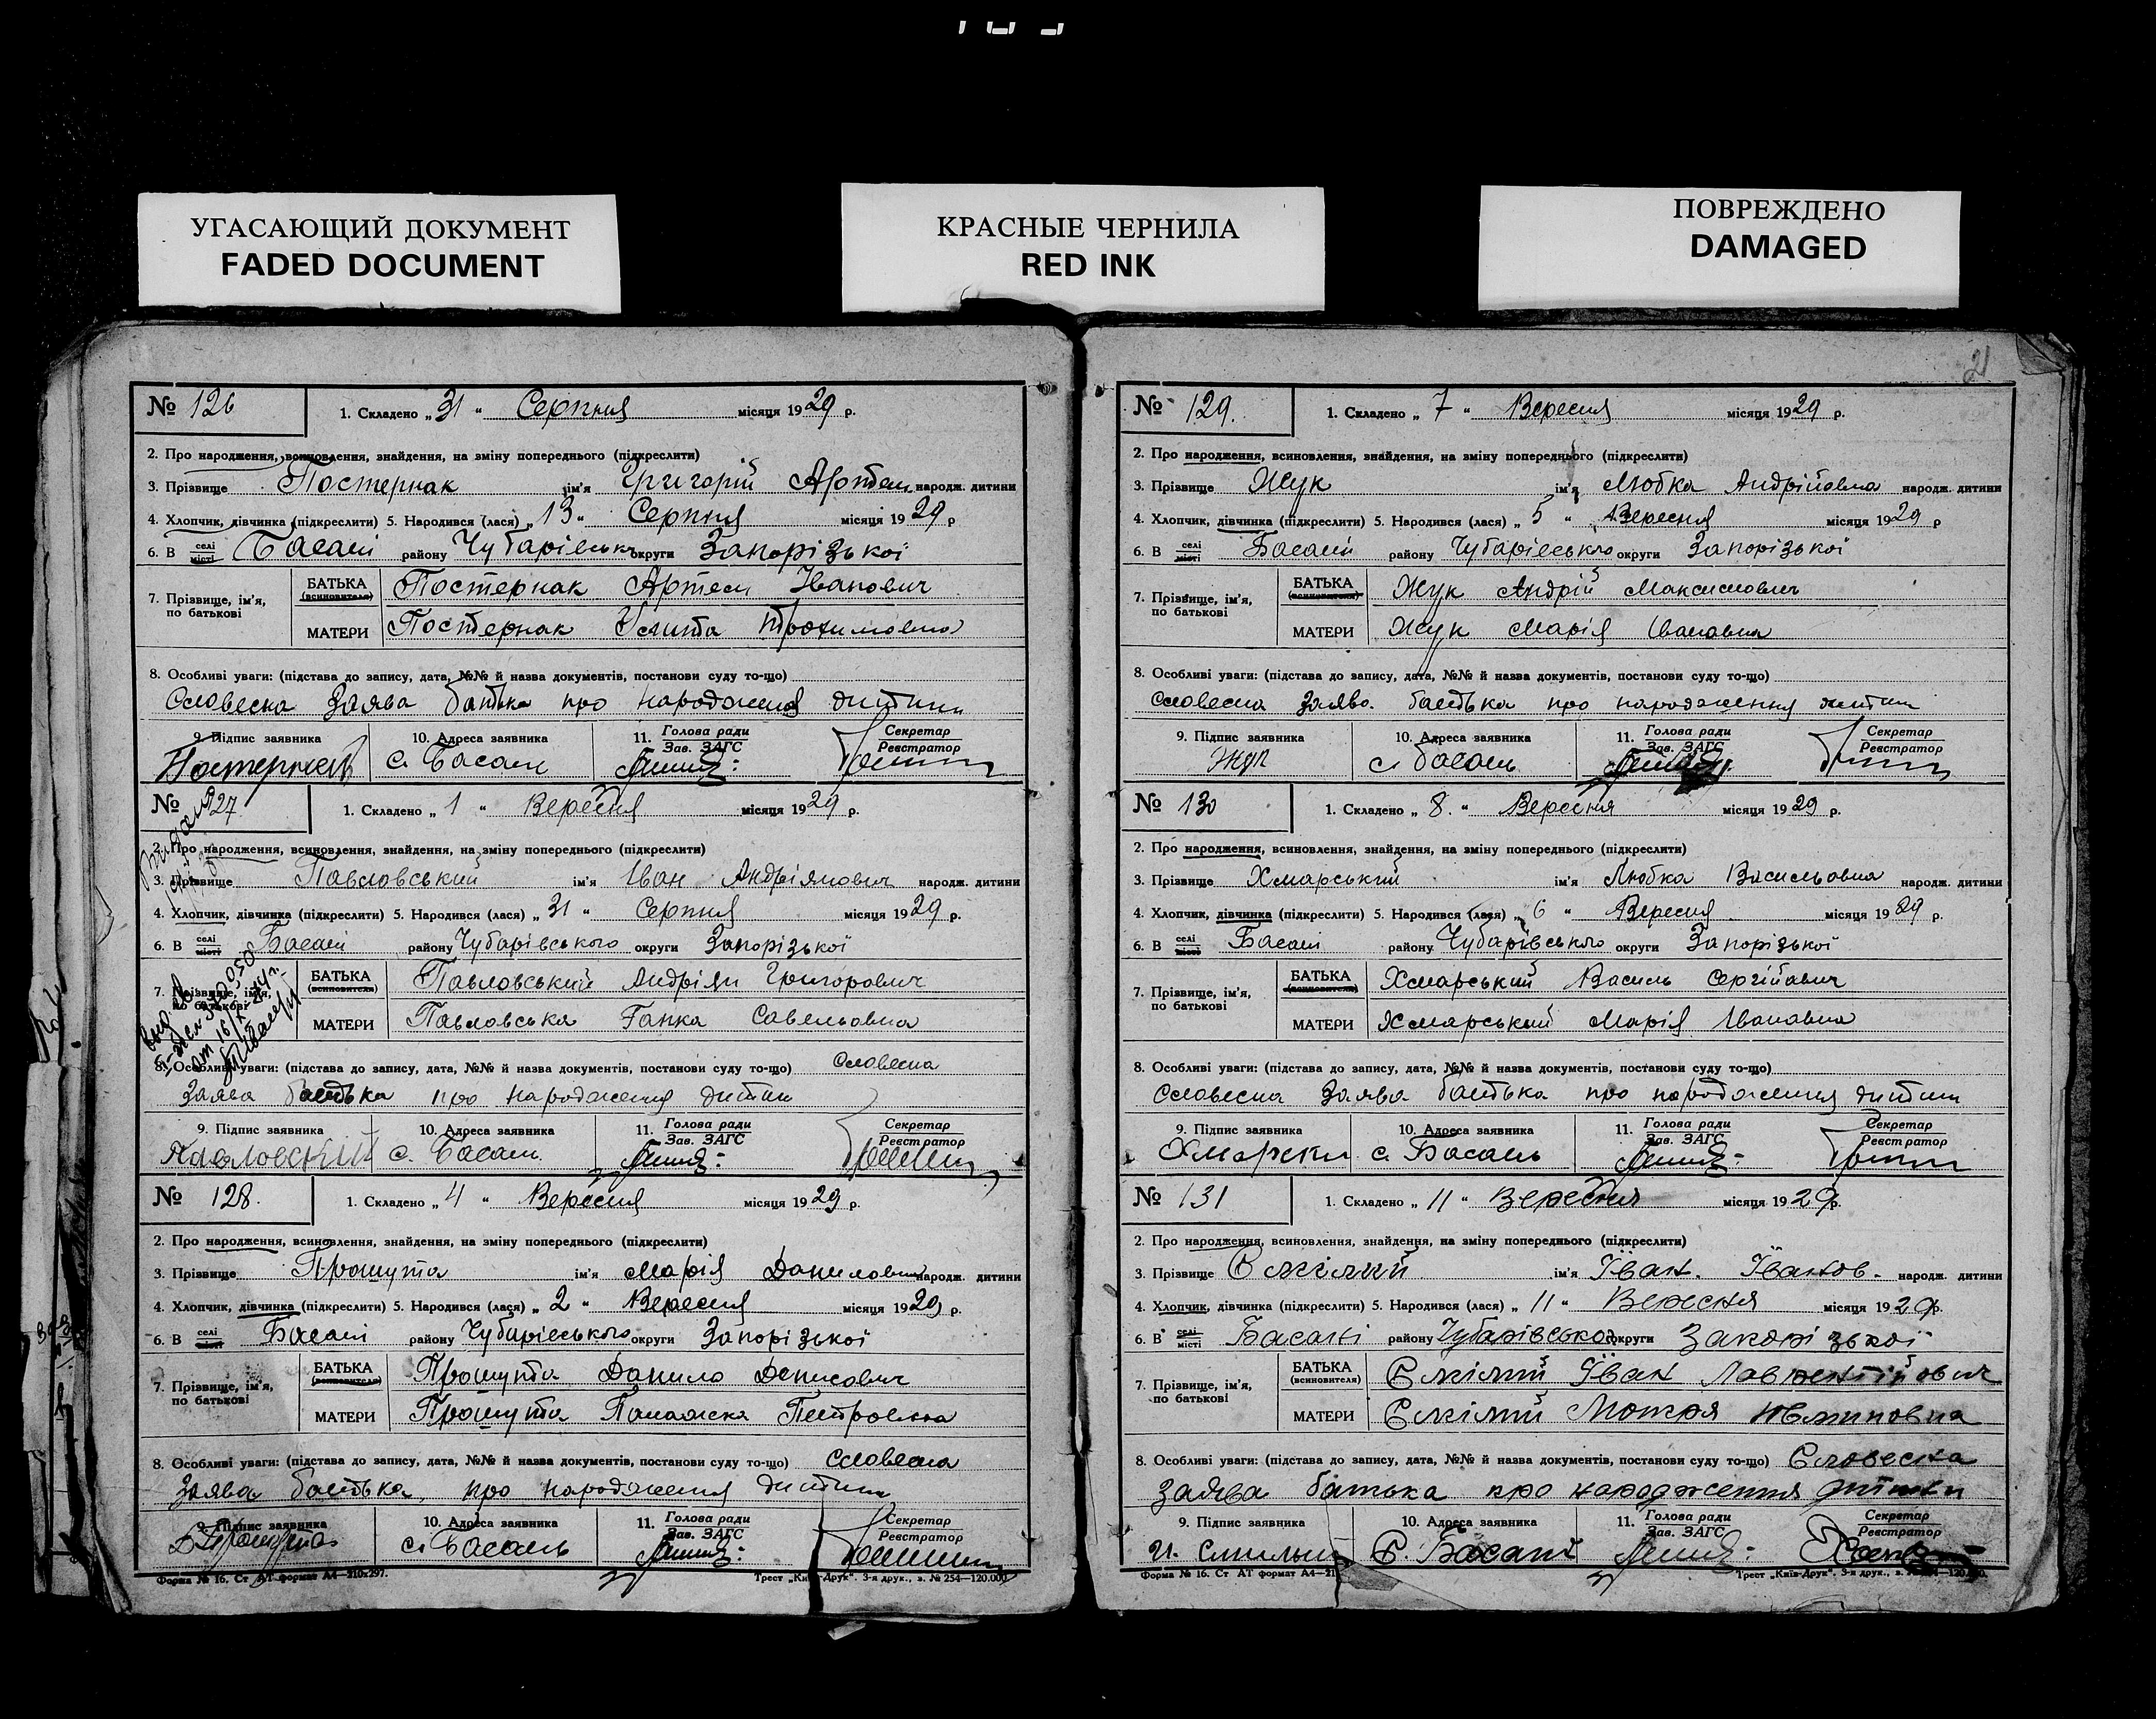 УГАСАЮЩИЙ ДОКУМЕНТ
FADED DOCUMENT
КРАСНЫЕ ЧЕРНИЛА
RED INK
ПОВРЕЖДЕНО
DAMAGED
№ 126
1. Складено „ 31 “ Серпня місяця 1929 р.
2. Про народження, всиновлення, знайдення, на зміну попереднього (підкреслити)
3. Прізвище Постернак ім'я Григорій Артем народж. дитини
4. Хлопчик, дівчинка (підкреслити) 5. Народився (лася) „ 13 “ Серпня місяця 1929 р
6. В селі місті Басані району Чубарівськ округи Запорізької
7. Прізвище, ім'я, по батькові
БАТЬКА (всиновителя) Постернак Артем Іванович
МАТЕРИ Постернак Улита Трохимовна
8. Особливі уваги: (підстава до запису, дата, №№ й назва документів, постанови суду то-що)
Словесна Заява батька про народження дитини
9. Підпис заявника 10. Адреса заявника 11. Голова ради Зав. ЗАГС Секретар Реєстратор
с. Басань
№ 127
1. Складено „ 1 “ Вересня місяця 1929 р.
2. Про народження, всиновлення, знайдення, на зміну попереднього (підкреслити)
3. Прізвище Павловський ім'я Іван Андріянович народж. дитини
4. Хлопчик, дівчинка (підкреслити) 5. Народився (лася) „ 31 “ Серпня місяця 1929 р.
6. В селі місті Басані району Чубарівського округи Запорізької
7. Прізвище, ім'я, по батькові
БАТЬКА (всиновителя) Павловський Андріян Григорович
МАТЕРИ Павловська Ганка Савельовна
8. Особливі уваги: (підстава до запису, дата, №№ й назва документів, постанови суду то-що) Словесна
Заява батька про народження дитин
9. Підпис заявника 10. Адреса заявника 11. Голова ради Зав. ЗАГС Секретар Реєстратор
Павловский с. Басань
№ 128.
1. Складено „ 4 “ Вересня місяця 1929 р.
2. Про народження, всиновлення, знайдення, на зміну попереднього (підкреслити)
3. Прізвище Прошута ім'я Марія Даниловна народж. дитини
4. Хлопчик, дівчинка (підкреслити) 5. Народився (лася) „ 2 “ Вересня місяця 1929 р.
6. В селі місті Басані району Чубарівського округи Запорізької
7. Прізвище, ім'я, по батькові
БАТЬКА (всиновителя) Прошута Данило Денисович
МАТЕРИ Прошута Палажка Петровна
8. Особливі уваги: (підстава до запису, дата, №№ й назва документів, постанови суду то-що) Словесна
Заява батька про народження дитини
9. Підпис заявника 10. Адреса заявника 11. Голова ради Зав. ЗАГС Секретар Реєстратор
с. Басань
Форма № 16. Ст АТ формат А4—210х297. Трест „Київ-Друк“. 3-я друк., з. № 254—120.000
21
№ 129.
1. Складено „ 7 “ Вересня місяця 1929 р.
2. Про народження, всиновлення, знайдення, на зміну попереднього (підкреслити)
3. Прізвище Жук ім'я Любка Андрійовна народж. дитини
4. Хлопчик, дівчинка (підкреслити) 5. Народився (лася) „ 5 “ Вересня місяця 1929 р
6. В селі місті Басані району Чубарівського округи Запорізької
7. Прізвище, ім'я, по батькові
БАТЬКА (всиновителя) Жук Андрій Максимович
МАТЕРИ Жук Марія Івановна
8. Особливі уваги: (підстава до запису, дата, №№ й назва документів, постанови суду то-що)
Словесна Заява батька про народження дитини
9. Підпис заявника 10. Адреса заявника 11. Голова ради Зав. ЗАГС Секретар Реєстратор
Жук с. Басань
№ 130
1. Складено „ 8. “ Вересня місяця 1929 р.
2. Про народження, всиновлення, знайдення, на зміну попереднього (підкреслити)
3. Прізвище Хмарський ім'я Любка Васильовна народж. дитини
4. Хлопчик, дівчинка (підкреслити) 5. Народився (лася) „ 6 “ Вересня місяця 1929 р.
6. В селі місті Басані району Чубарівського округи Запорізької
7. Прізвище, ім'я, по батькові
БАТЬКА (всиновителя) Хмарський Василь Сергійович
МАТЕРИ Хмарський Марія Івановна
8. Особливі уваги: (підстава до запису, дата, №№ й назва документів, постанови суду то-що)
Словесна Заява батька про народження дитини
9. Підпис заявника 10. Адреса заявника 11. Голова ради Зав. ЗАГС Секретар Реєстратор
Хмарски с. Басань
№ 131
1. Складено „ 11 “ Вересня місяця 1929 р.
2. Про народження, всиновлення, знайдення, на зміну попереднього (підкреслити)
3. Прізвище Смілий ім'я Іван. Іванов. народж. дитини
4. Хлопчик, дівчинка (підкреслити) 5. Народився (лася) „ 11 “ Вересня місяця 1929 р.
6. В селі місті Басані району Чубарівсько округи Запорізької
7. Прізвище, ім'я, по батькові
БАТЬКА (всиновителя) Смілий Іван Лаврентійович
МАТЕРИ Смілий Мотря
8. Особливі уваги: (підстава до запису, дата, №№ й назва документів, постанови суду то-що) Словесна
Заява батька про народження дитини
9. Підпис заявника 10. Адреса заявника 11. Голова ради Зав. ЗАГС Секретар Реєстратор
с. Басані
Форма № 16. Ст АТ формат А4—21 Трест „Київ-Друк“. 3-я друк., з.